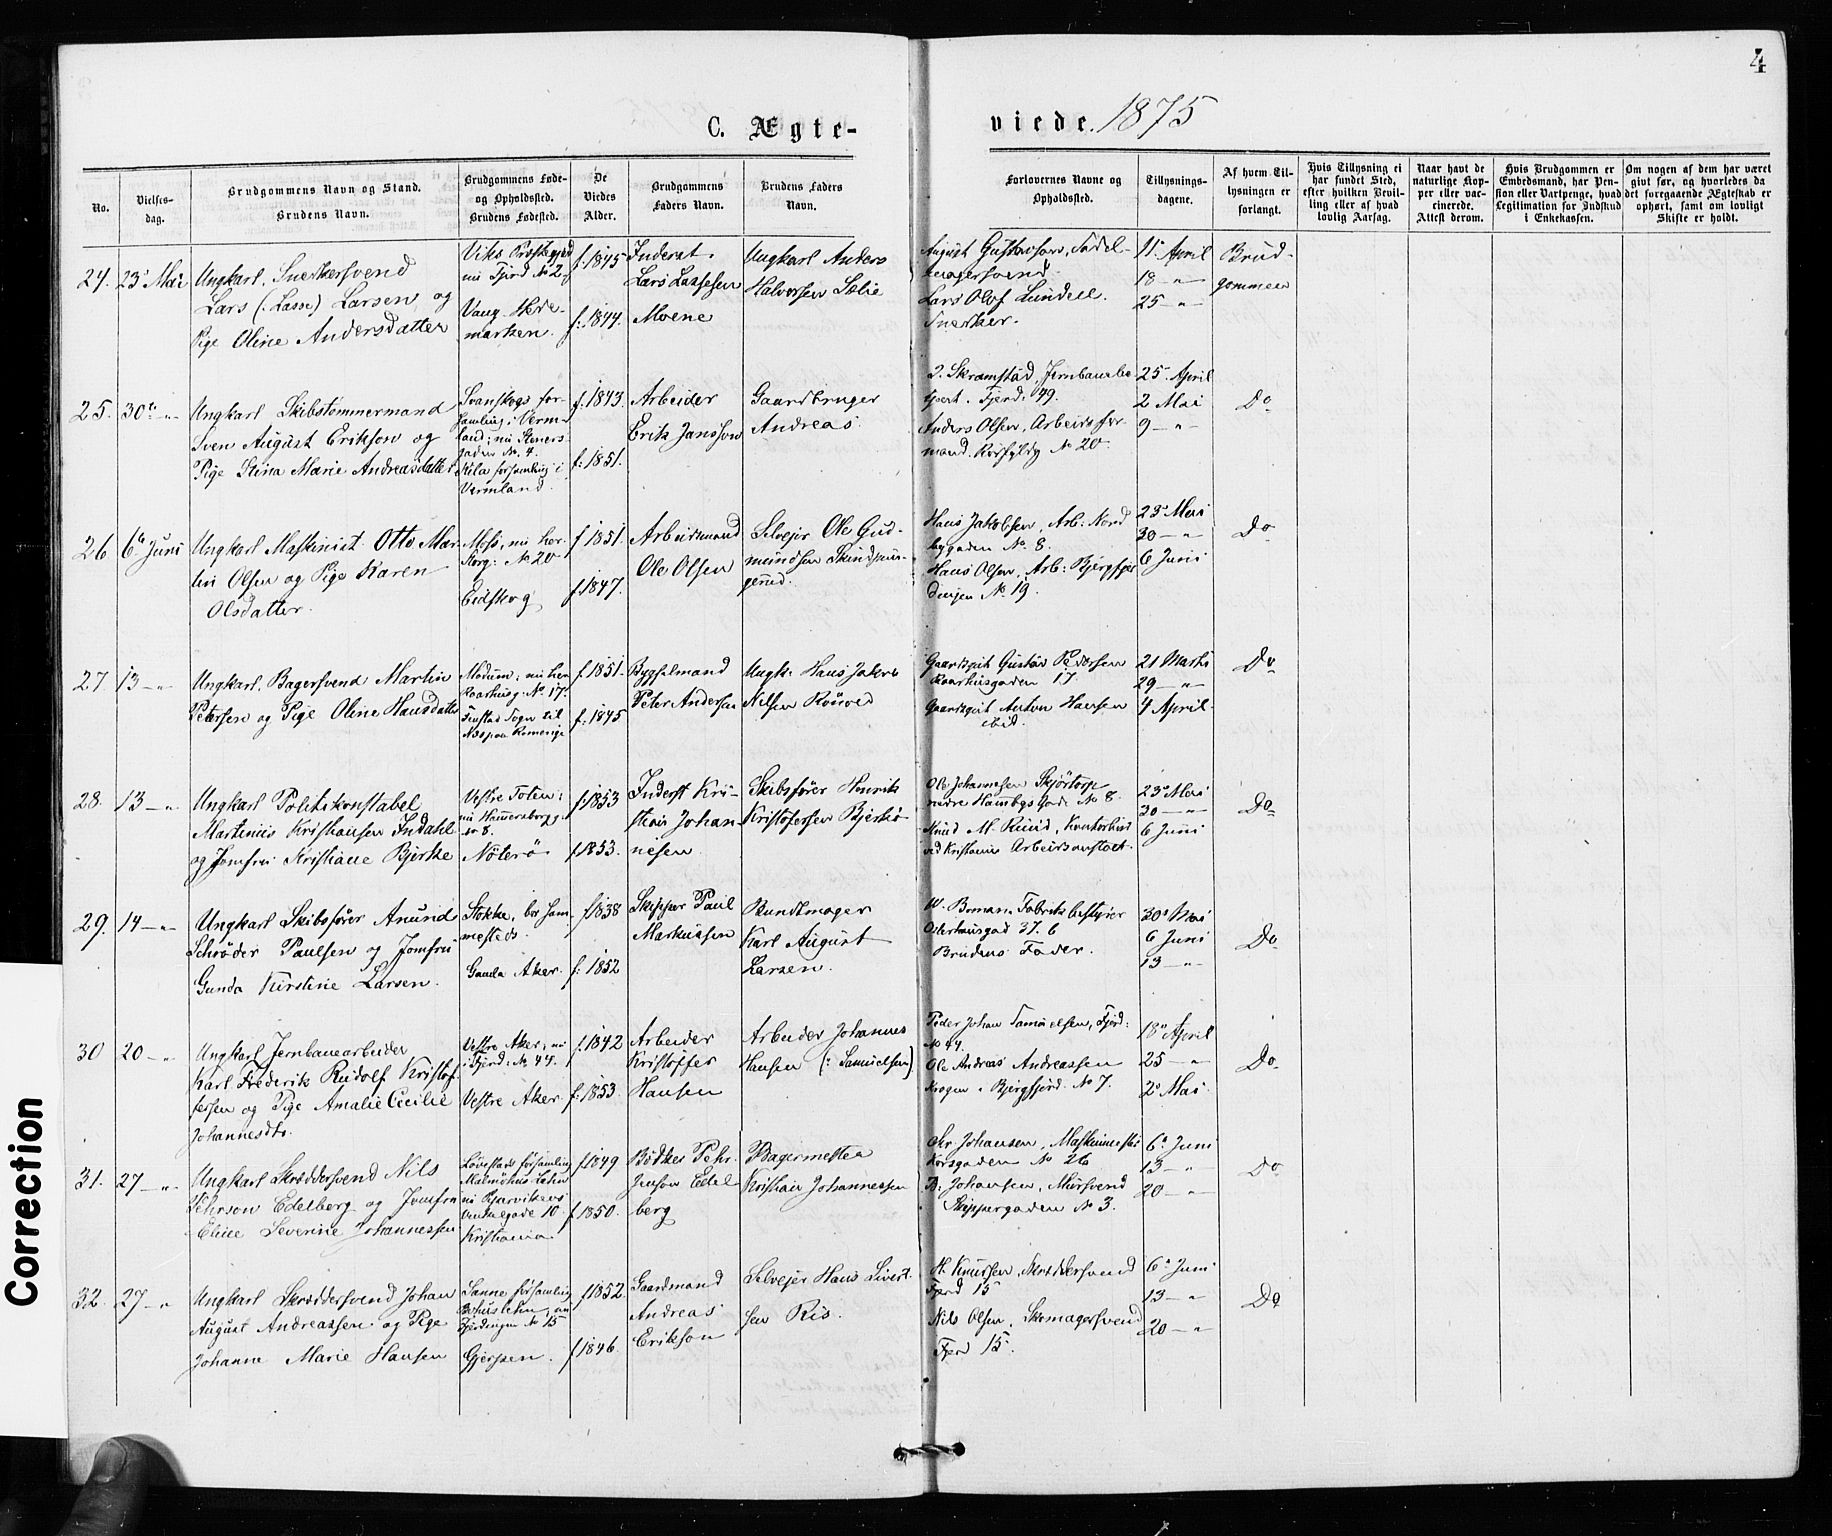 4
C. Ægte-
viede. 1875
No.
Vielses-
dag.
Brudgommens Navn og Stand.
Brudens Navn.
Brudgommens Føde-
og Opholdssted.
Brudens Fødested.
De
Viedes
Alder.
Brudgommens
Faders Navn.
Brudens Faders
Navn.
Forlovernes Navne og
Opholdssted.
Tillysnings-
dagene.
Af hvem Til-
lysningen er
forlangt.
Hvis Tillysning ei
har fundet Sted,
efter hvilken Bevil-
ling eller af hvad
lovlig Aarsag.
Naar havt de
naturlige Kop-
per eller vac-
cinerede.
Attest derom.
Hvis Brudgommen er
Embedsmand, har Pen-
sion eller Vartpenge, hvad
Legitimation for Indskud
i Enkekassen.
Om nogen af dem har været
givt før, og hvorledes da
det foregaaende Ægteskab er
ophørt, samt om lovligt
Skifte er holdt.
24. 23 Mai
Ungkarl, Snerkersvend
Lars (: Lasse) Larsen og
Pige Oline Andersdatter
Viks Præstegjeld
nu Fjerd No 2.
Vang Hede-
marken.
f. 1845
f. 1844.
Inderst
Lars Lassesen
Moene
Ungkarl Anders
Halvorsen Sælie
August Gustavson, Sadel-
magersvend
Lars Olof Lundell.
Snerker.
11 April
18 — "
25 — "
Brud-
gommen
25. 30 "
Ungkarl Skibstømmermand
Sven August Erikson og
Pige Stina Marie Andreasdatter
Svanskogs for-
samling i Verm-
land; nu Steners
gaden No. 4.
Kila forsamling i
Vermland.
f. 1843.
f. 1851.
Arbeider
Erik Jansson
Gaardbruger
Andreas
J. Skramstad, Jernbanebe-
tjent. Fjerd. 49.
Anders Olsen, Arbeidsfor-
mand. No 20.
25 April
2 Mai
9 — "
Do
26 6 Juni
Ungkarl Maskinist Otto Mar-
tin Olsen og Pige Karen
Olsdatter.
Moss, nu her
No 20
Eidskog
f 1851.
f. 1847.
Arbeidsmand
Ole Olsen
Selveier Ole Gud-
mundsen
Hans Jakobsen, Arb: Nord
bygaden No 8.
Hans Olsen, Arb: Bjergfjer
dingen No 19.
23 Mai
30 — "
6 Juni
Do
27 13 — "
Ungkarl, Bagersvend Martin
Petersen og Pige Oline Hansdatter
Modum; nu her
Raadhusg. No 17.
Sogn til
Næs paa Romerige
f. 1851.
f. 1845
Bygselmand
Peter Andersen
Ungk: Hans Jakob
Nilsen
Gaardsgut Gustav Pedersen
Raadhusgaden 17
Gaardsgut Anton Hansen
ibid.
21 Marts
29 — "
4 April
Do
28. 13 — "
Ungkarl Politikonstabel
Martinius Kristiansen Indahl
og Jomfru Kristiane Bjerke
Vestre Toten;
nu Hammersborgg.
No 8.
Nøterø
f. 1853
f 1853.
Inderst Kri-
stian Johan-
nesen
Skibsfører Henrik
Kristofersen Bjerke
Ole Johannesen Skjörtorp
nedre Hambgs Gade No 8.
Knud M. Ruud, Kontorbud
ved Kristiania Arbeidsanstalt.
23 Mai
30 — "
6 Juni
Do
29. 14 — "
Ungkarl Skibsfører Anund
Schrøder Paulsen og Jomfru
Gunda Kirstine Larsen.
Stokke, bor sam-
mesteds.
Gamla Aker.
f. 1838
f: 1852
Skipper Paul
Markussen
Bundtmager
Karl August
Larsen.
W. Boman, Fabrikbestyrer
Osterhausgad 37. b
Brudens Fader.
30 Mai
6 Juni
13 — "
Do
30 20 — "
Ungkarl Jernbanearbeider
Karl Frederik Rudolf Kristof-
fersen og Pige Amalie Cecilie
Johannesdtr.
Vestre Aker, nu
i Fjerd: No 44.
Vestre Aker.
f. 1842
f. 1853.
Arbeider
Kristoffer
Hansen
Arbeider Johannes
Hansen (: Samuelsen)
Peder Johan Samuelsen, Fjerd:
No 44.
Ole Andreas Andreassen
Krogen i Bjergfjerd. No 7.
18 April
25 — "
2 Mai
Do
31. 27 — "
Ungkarl Skræddersvend Nils
Pehrson Edelberg og Jomfru
Eline Severine Johannessen
Løvestads forsamling
Malmöhus Lehn
nu Bjørvikens
gade 10
Kristiania
f. 1849
f 1850.
Bødker Pehr
Jenson Edel
berg
Bagermester
Kristian Johannessen
Johansen, Maskinmester
Korsgaden No 26
B. Johansen, Mursvend
Skippergaden No 3.
6 Juni
13 — "
20 — "
Do
32. 27 — "
Ungkarl Skræddersvend Johan
August Andreassen og Pige
Johanne Marie Hansen
Sanne forsamling
Bohuslehn, nu
Fjerdingen No 15
Gjerpen.
f 1852.
f 1846.
Gaardmand
Andreas
Erikson
Selveier Hans Sivert
sen Ris.
H. Knudsen, Skræddersvend
Fjerd 15
Nils Olsen, Skomagersvend
Fjerd 15.
6 Juni
13 — "
20 — "
Do
Correction